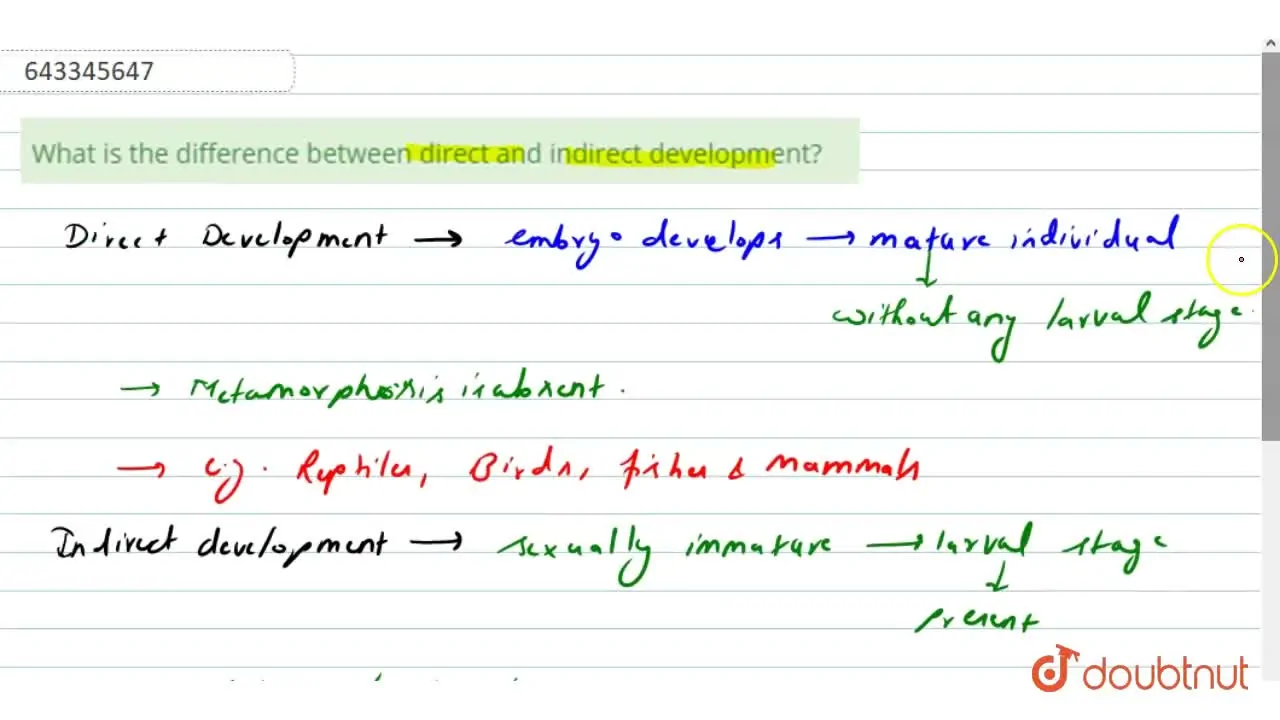 643345647
What is the difference between direct and indirect development?
Direct Development → embryo develops → mature individual
↓
without any larval stage.
→ Metamorphosis is absent.
→ e.g. Reptiles, Birds, fishes & mammals
Indirect development → sexually immature → larval stage
↓
present
doubtnut